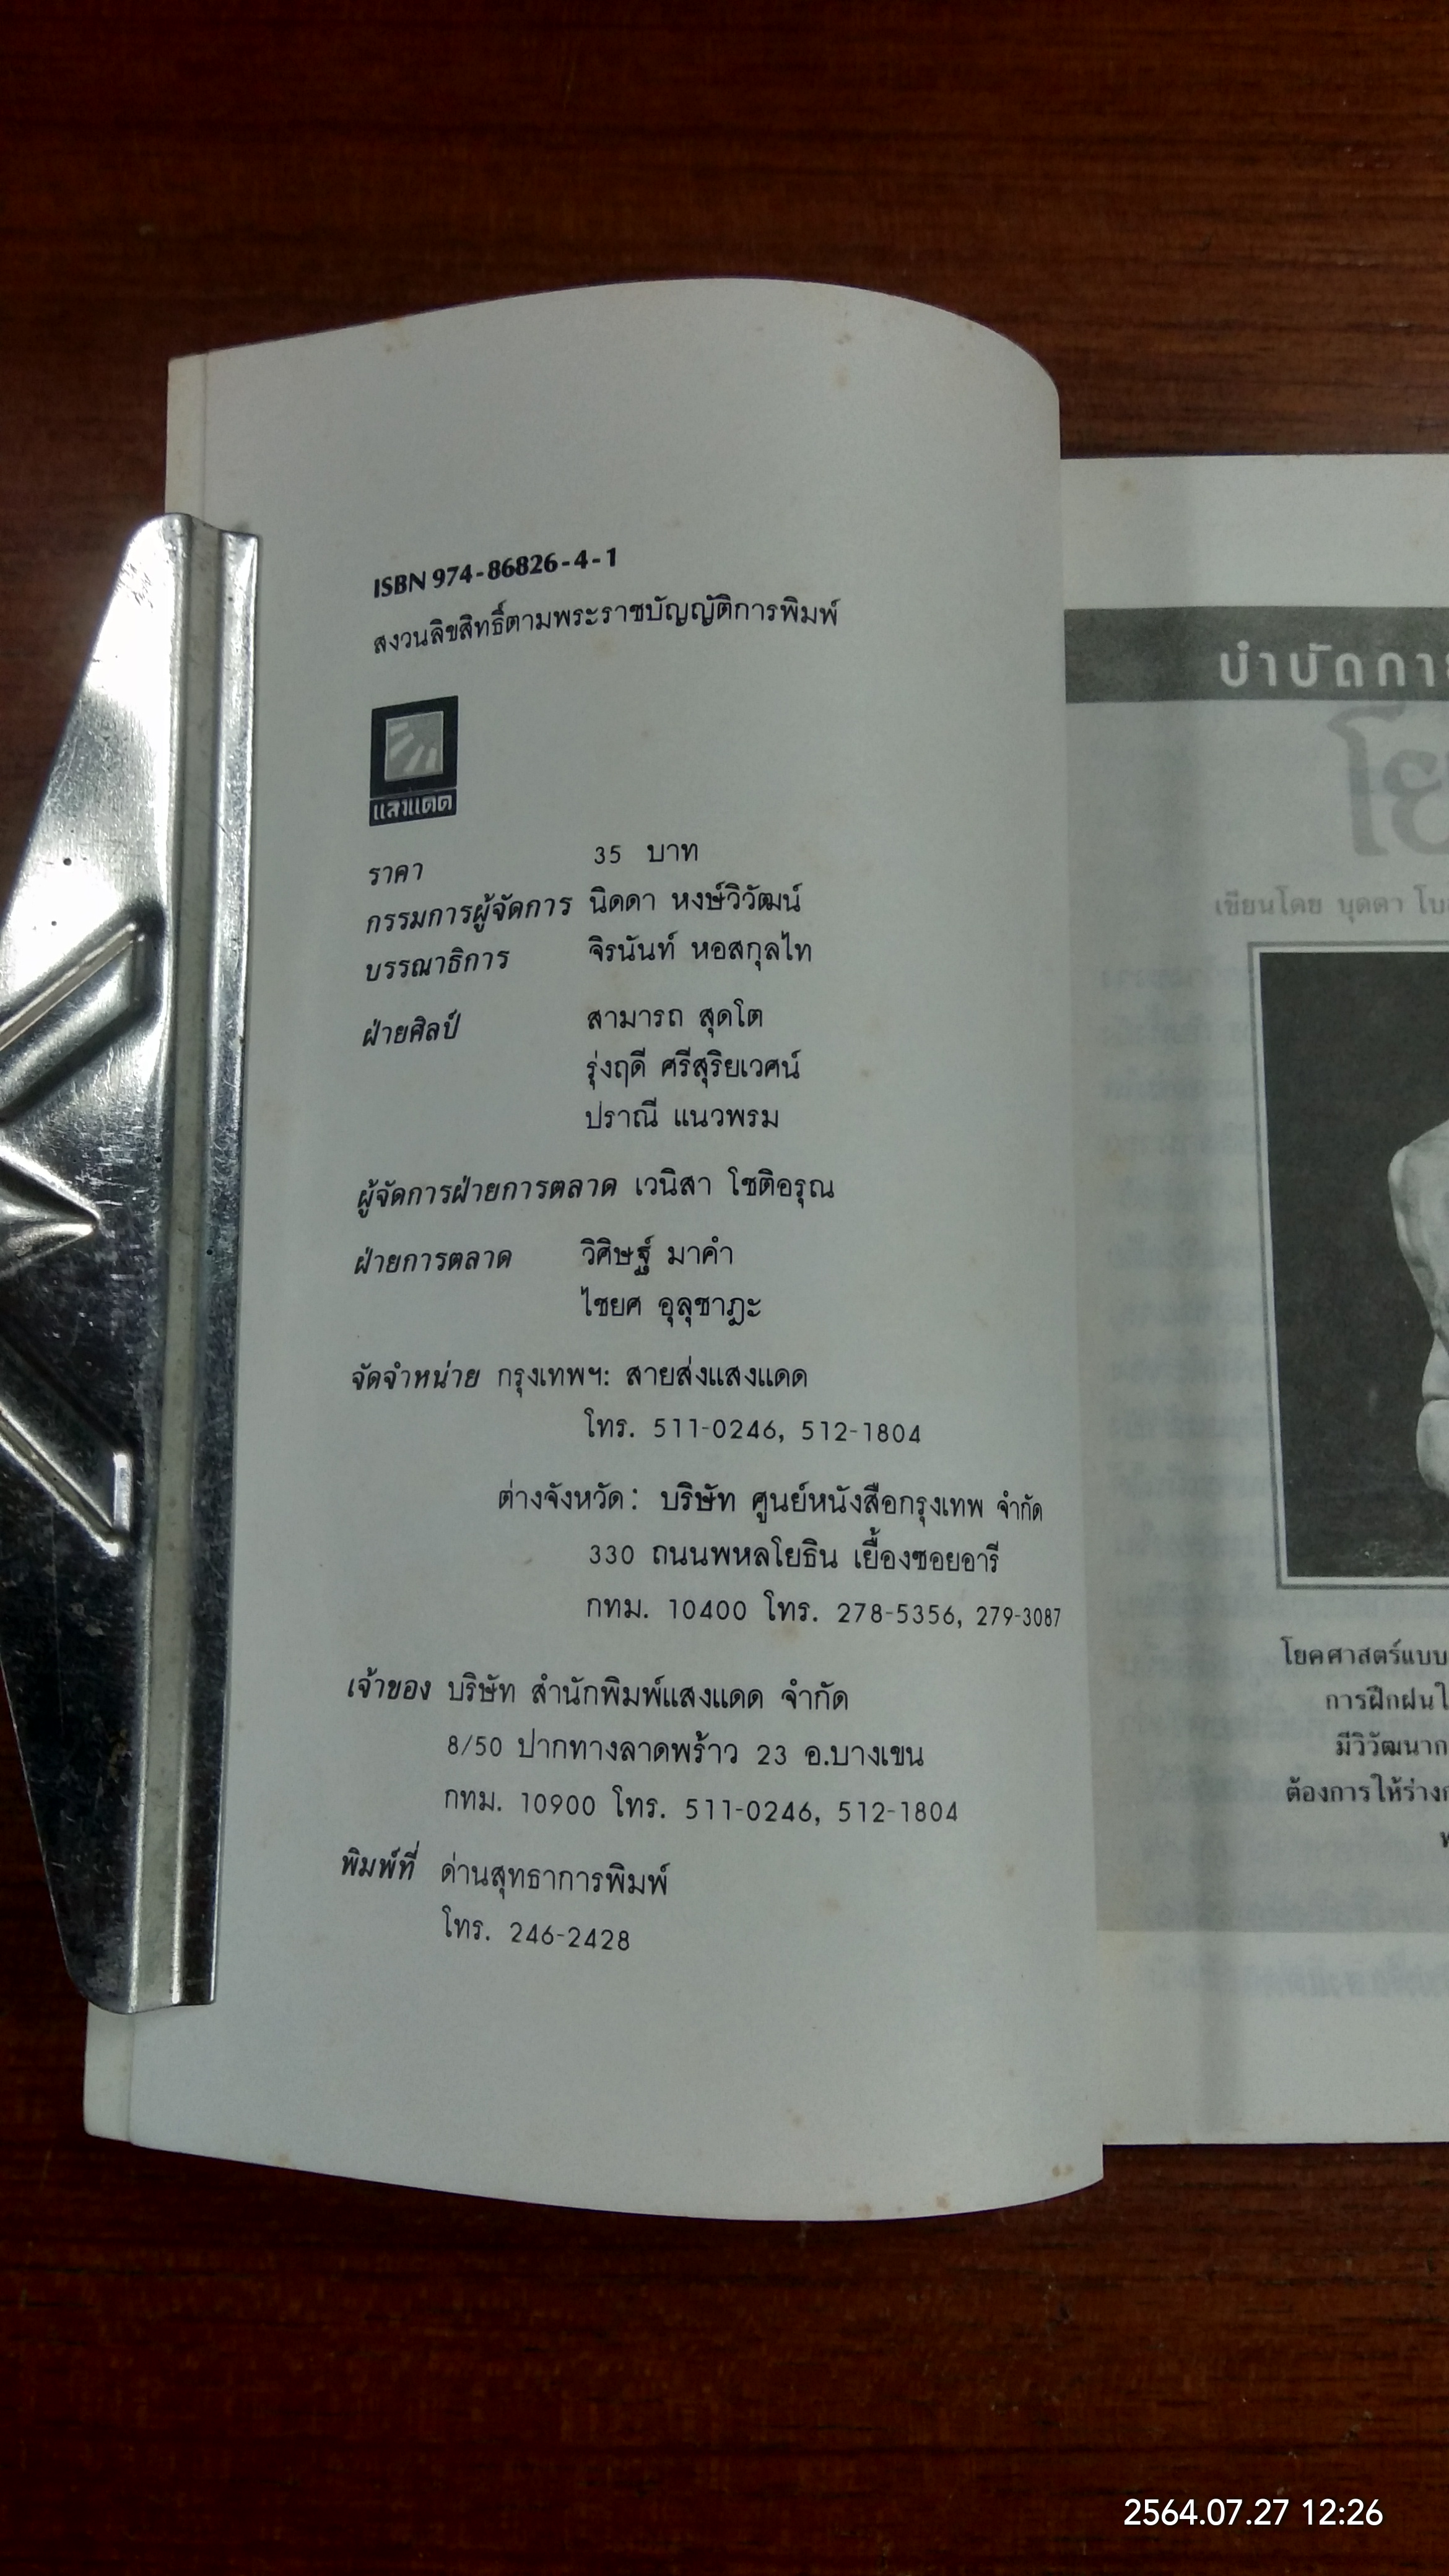 ISBN 974-86826-4-1
สงวนลิขสิทธิ์ตามพระราชบัญญัติการพิมพ์
แสงแดด
ราคา 35 บาท
กรรมการผู้จัดการ นิดดา หงษ์วิวัฒน์
บรรณาธิการ จิรนันท์ หอสกุลไท
ฝ่ายศิลป์ สามารถ สุดโต
รุ่งฤดี ศรีสุริยเวศน์
ปราณี แนวพรม
ผู้จัดการฝ่ายการตลาด เวนิสา โชติอรุณ
ฝ่ายการตลาด วิศิษฐ์ มาคำ
ไชยศ อุลุชาฎะ
จัดจำหน่าย กรุงเทพฯ: สายส่งแสงแดด
โทร. 511-0246, 512-1804
ต่างจังหวัด: บริษัท ศูนย์หนังสือกรุงเทพ จำกัด
330 ถนนพหลโยธิน เยื้องซอยอารี
กทม. 10400 โทร. 278-5356, 279-3087
เจ้าของ บริษัท สำนักพิมพ์แสงแดด จำกัด
8/50 ปากทางลาดพร้าว 23 อ.บางเขน
กทม. 10900 โทร. 511-0246, 512-1804
พิมพ์ที่ ด่านสุทธาการพิมพ์
โทร. 246-2428
บำบัดกา
โย
เขียนโดย บุดดา โบ
โยคศาสตร์แบบ
การฝึกฝนใ
มีวิวัฒนาก
ต้องการให้ร่างก
2564.07.27 12:26